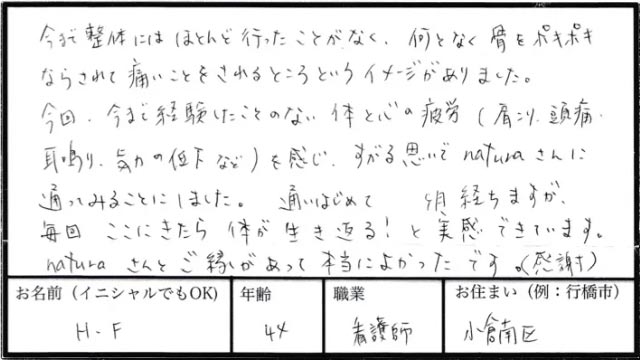 今まで整体にはほとんど行ったことがなく、何となく骨をポキポキ
ならされて痛いことをされるところというイメージがありました。
今回、今まで経験したことのない体と心の疲労(肩こり、頭痛・
耳鳴り、気力の低下など)を感じ、すがる思いでnaturaさんに
通ってみることにしました。 通いはじめて 月経ちますが、
毎回ここにきたら体が生き返る!と実感できています。
naturaさんとご縁があって本当によかったです。(感謝)
お名前(イニシャルでもOK) 年齢 職業 お住まい(例:行橋市)
H.F 44 看護師 小倉南区